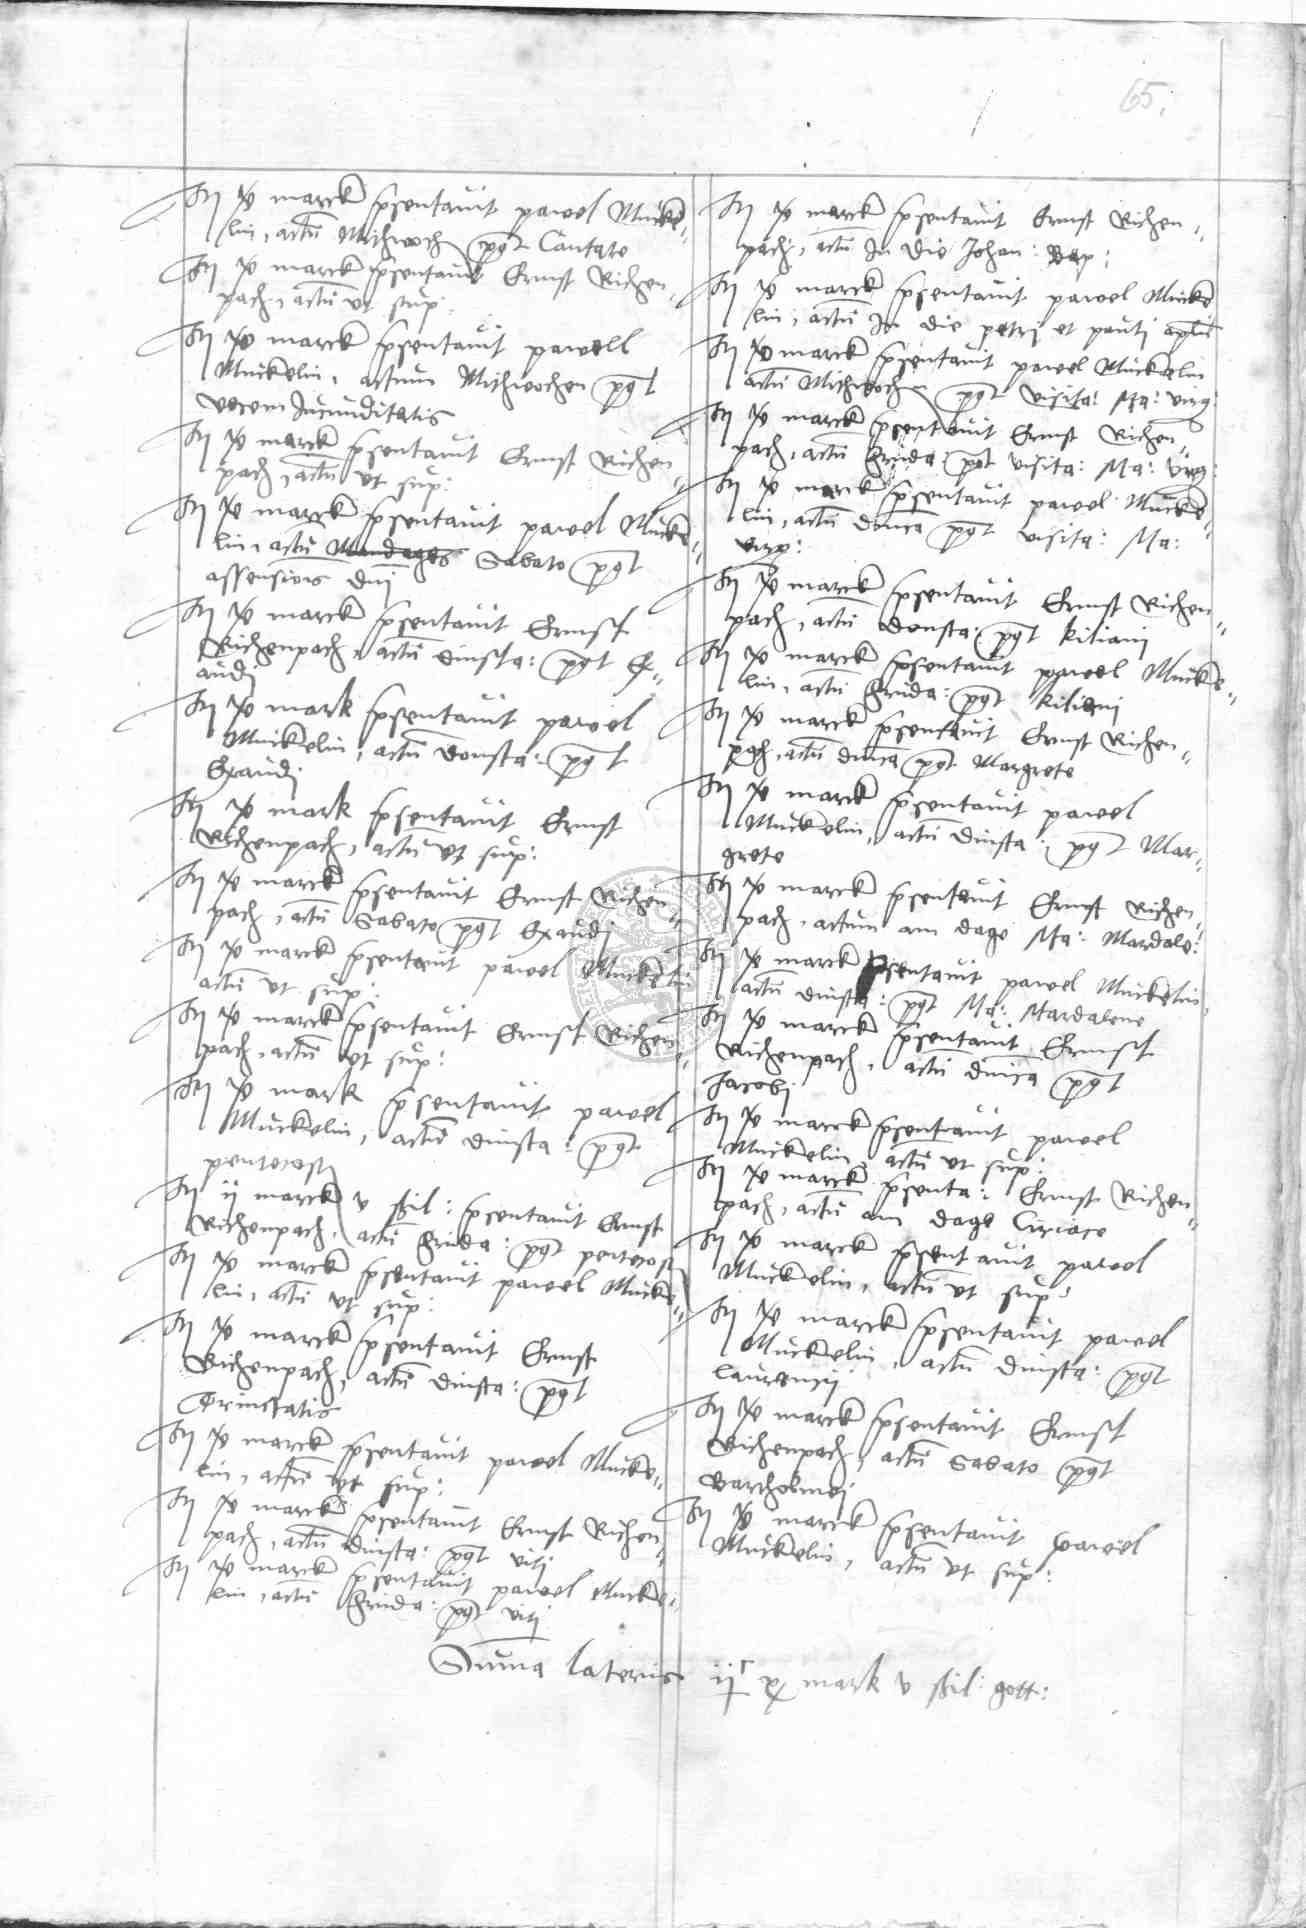 65.
Itm xv marck psentavit pawel Mucke„
lin, actu Mithwoch pqt Cantate
Itm xv marck psentavit Ernst Richen„
pach, actu ut sup:
Itm xv marck psentavit pawell
Muckelin, actum Mithwochen pqt
vocem Jucunditatis
Itm xv marck psentavit Ernst Richen„
pach, actu ut sup:
Itm xv marck psentavit pawel Mucke„
lin, actu Mandages Sabato pqt
assensiois dni
Itm xv marck psentavit Ernst
Richenpach, actu dinsta: pqt Ex„
audi
Itm xv mark psentavit pawel
Muckelin, actu donsta: pqt
Exaudi
Itm xv mark psentavit Ernst
Richenpach, actu ut sup:
Itm xv marck psentavit Ernst Richen„
pach, actu Sabato pqt Exaudi
Itm xv marck psentavit pawel Muckelin
actu ut sup:
Itm xv marck psentavit Ernst Richen„
pach, actu ut sup:
Itm xv mark psentavit pawel
Muckelin, actu dinsta: pqt
pentecost
Itm ij marck v ßil: psentavit Ernst
Richenpach, actu frida: pqt pentecost
Itm xv marck psentavit pawel Mucke„
lin, actu ut sup:
Itm xv marck psentavit Ernst
Richenpach, actu dinsta: pqt
Trinitatis
Itm xv marck psentavit pawel Mucke„
lin, actu ut sup:
Itm xv marck psentavit Ernst Richen„
pach, actu dinsta: pqt viti
Itm xv marck psentavit pawel Mucke„
lin, actu frida: pqt viti
Itm xv marck psentavit Ernst Richen„
pach, actu In die Johan: Bap:
Itm xv marck psentavit pawel Mucke
lin, actu In die petri et pauli aplu
Itm xv marck psentavit pawel Muckelin
actu Mithwochen pqt visita: Ma: virg:
Itm xv marck psentavit Ernst Richen„
pach, actu frida: pqt visita: Ma: virg:
Itm xv marck psentavit pawel Mucke„
lin, actu dnica pqt visita: Ma:
virg:
Itm xv marck psentavit Ernst Richen„
pach, actu donsta: pqt kiliani
Itm xv marck psentavit pawel Mucke„
lin, actu frida: pqt kiliani
Itm xv marck psentavit Ernst Richen„
pach, actu dnica pqt Margrete
Itm xv marck psentavit pawel
Muckelin, actu dinsta: pqt Mar„
grete
Itm xv marck psentavit Ernst Richen„
pach, actum am dage Ma: Mardale:
Itm xv marck psentavit pawel Muckelin
actu dinsta: pqt Ma: Mardalene
Itm xv marck psentavit Ernst
Richenpach, actu dnica pqt
Jacobi
Itm xv marck psentavit pawel
Muckelin, actu ut sup:
Itm xv marck psenta: Ernst Richen„
pach, actu am dage Ciriace
Itm xv marck psentavit pawel
Muckelin, actu ut sup:
Itm xv marck psentavit pawel
Muckelin, actu dinsta: pqt
laurencij
Itm xv marck psentavit Ernst
Richenpach, actu Sabato pqt
Bartholmei
Itm xv marck psentavit pawel
Muckelin, actu ut sup:
Suma lateris mark v ßil: gott: